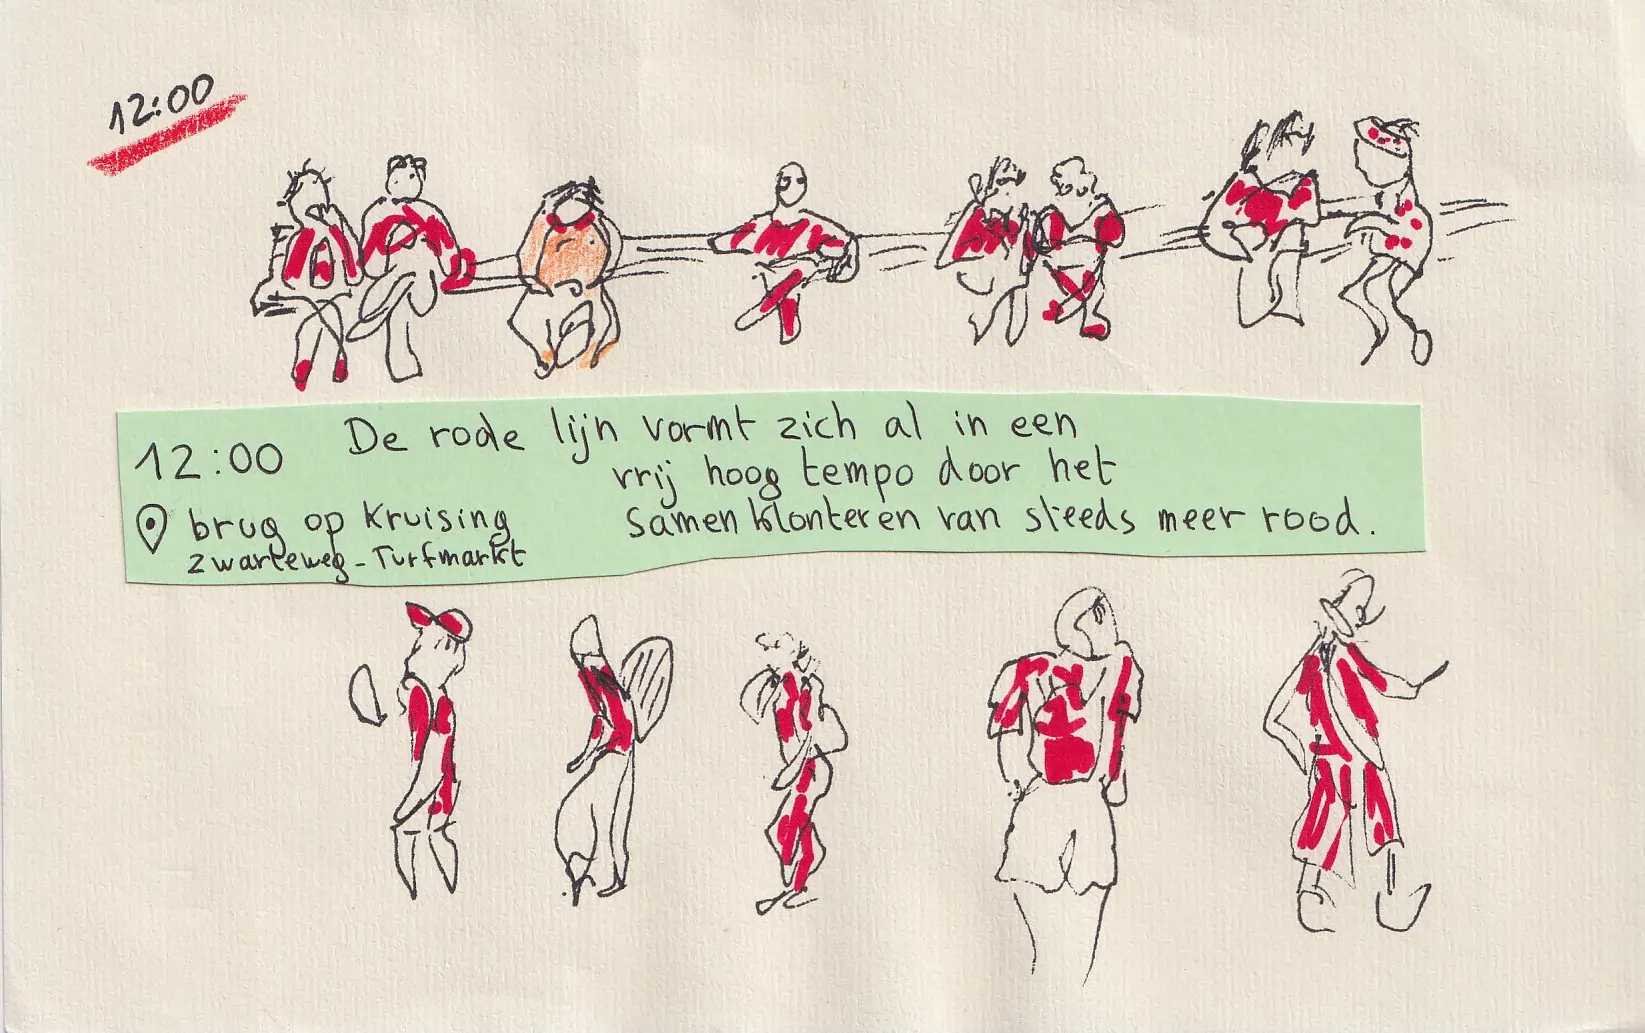 12:00
12:00
De rode lijn vormt zich al in een
vrij hoog tempo door het
samen klonteren van steeds meer rood.
brug op kruising
zwarteweg - Turfmarkt